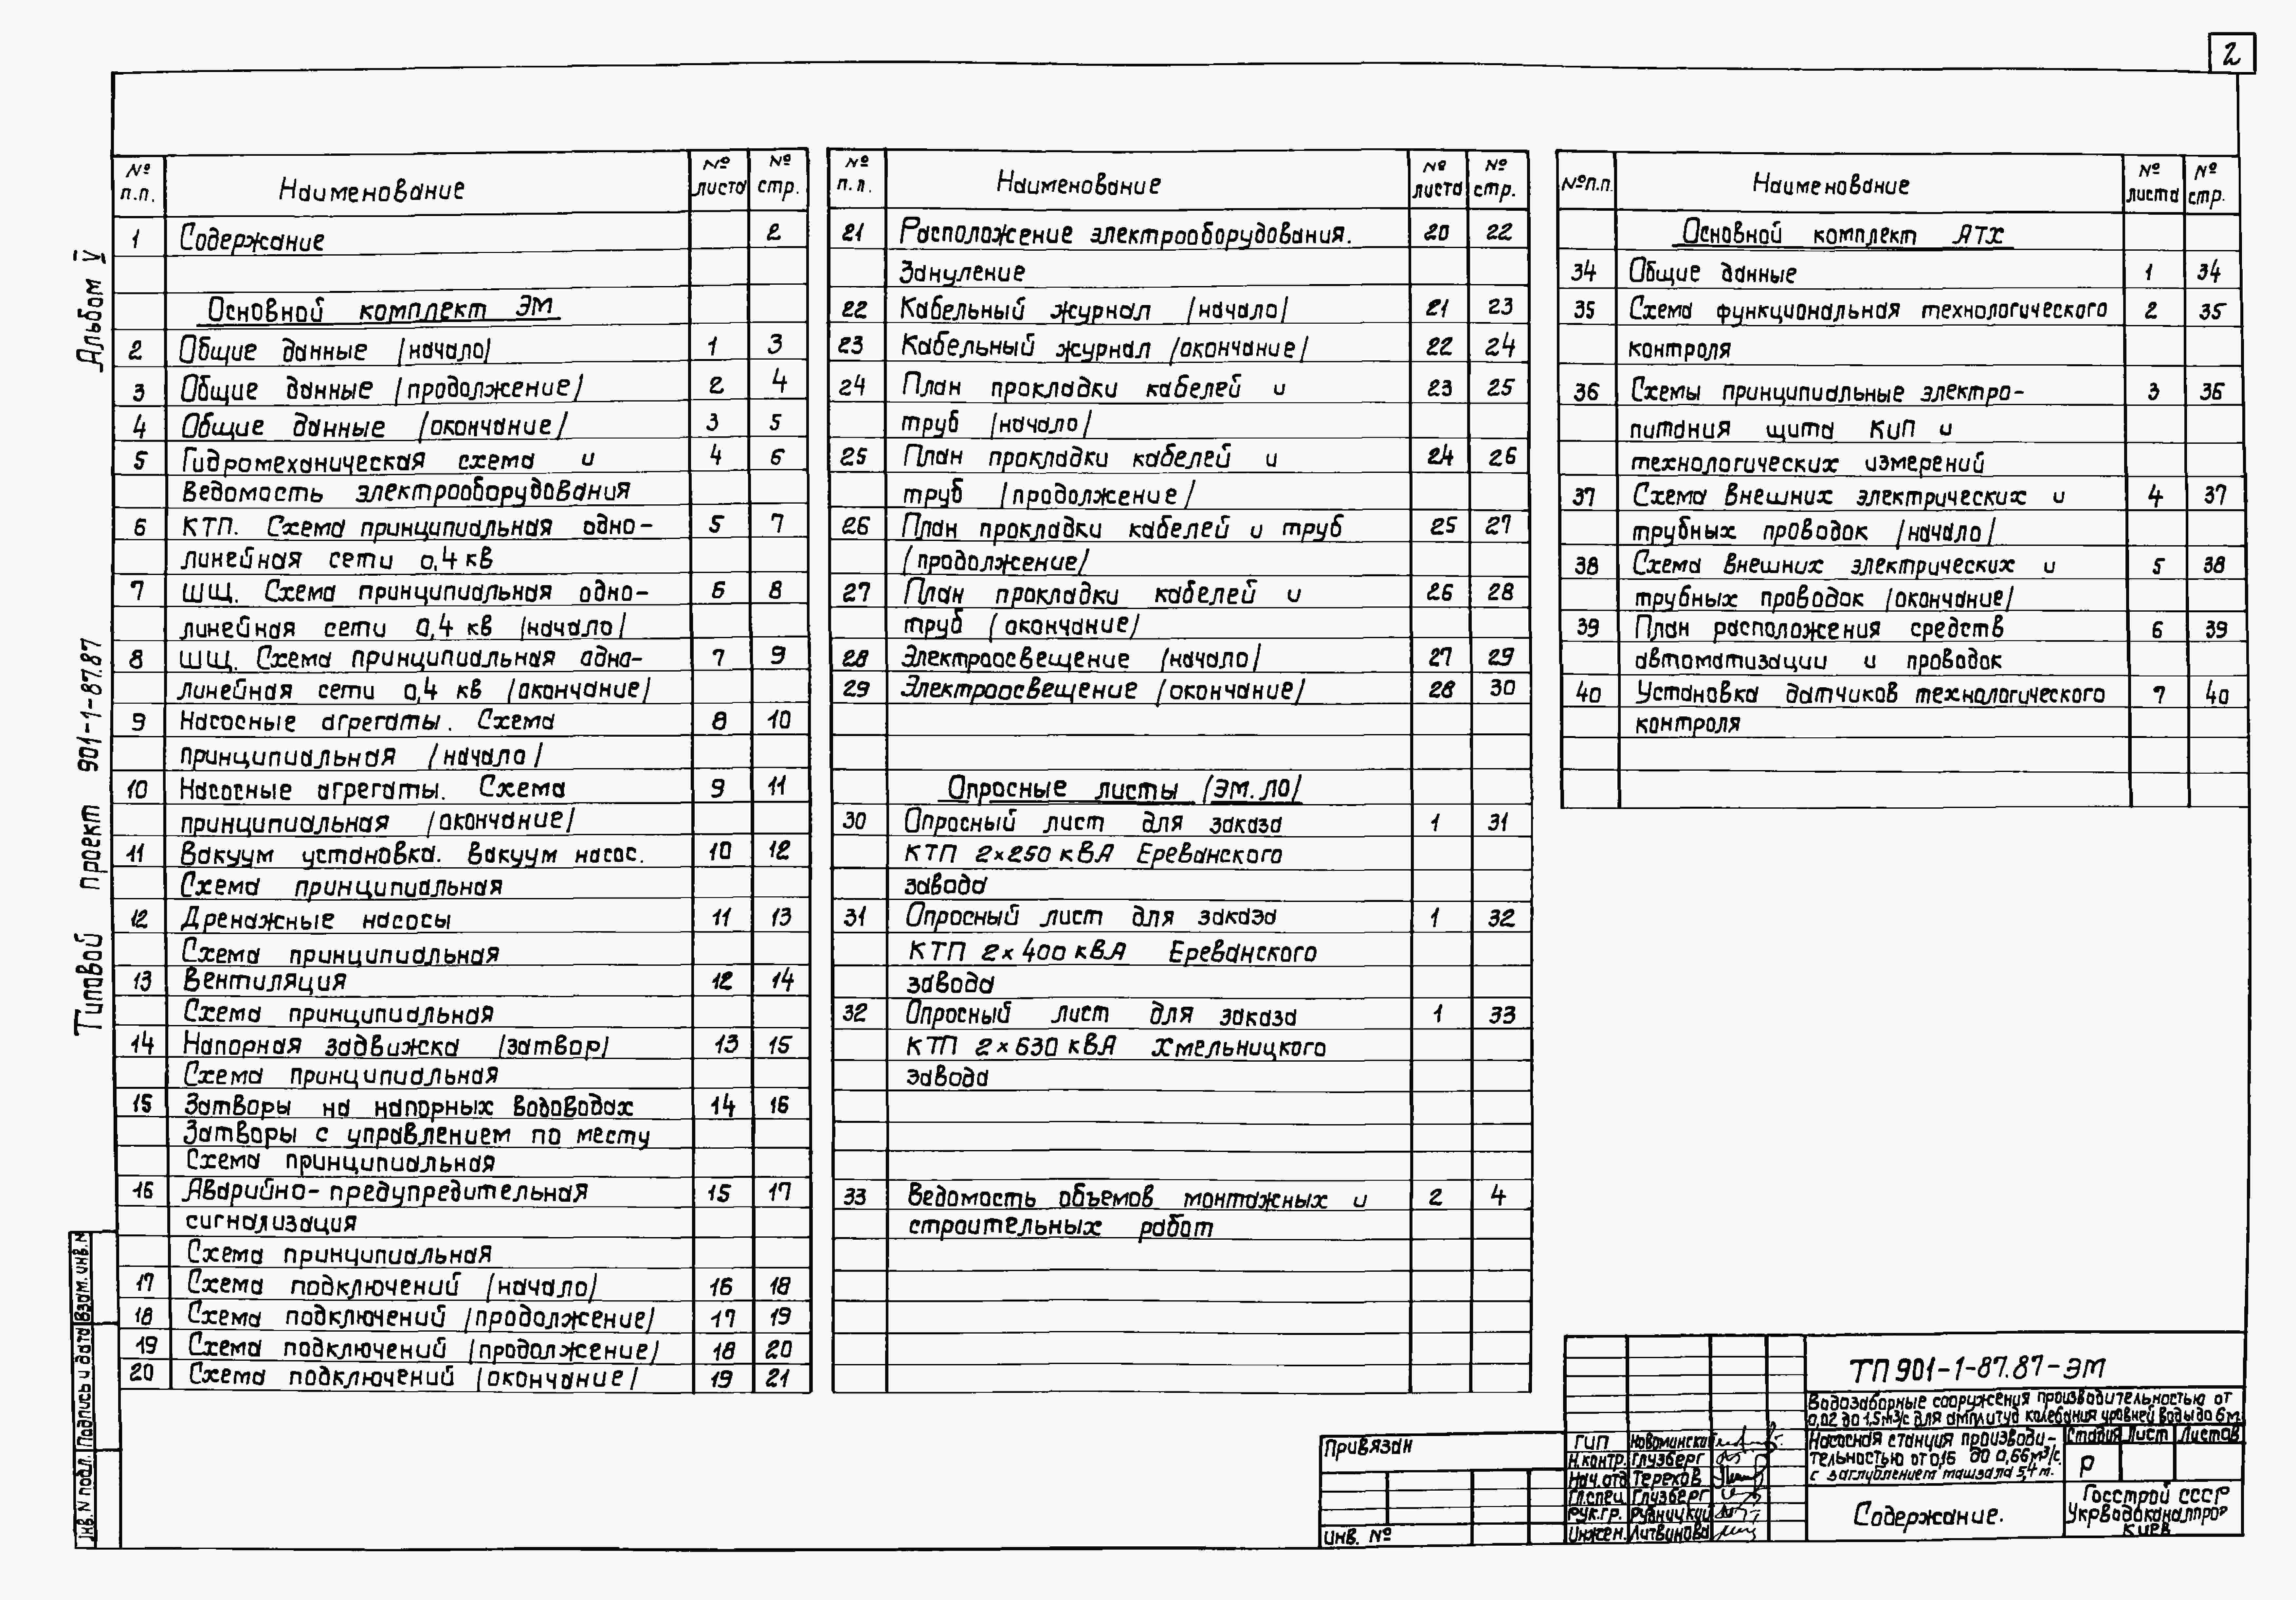 2
Альбом V
Типовой проект 901-1-87.87
№ п.п. Наименование № листа № стр.
1 Содержание 2
Основной комплект ЭМ
2 Общие данные /начало/ 1 3
3 Общие данные /продолжение/ 2 4
4 Общие данные /окончание/ 3 5
5 Гидромеханическая схема и 4 6
ведомость электрооборудования
6 КТП. Схема принципиальная одно- 5 7
линейная сети 0,4 кв
7 ШЩ. Схема принципиальная одно- 6 8
линейная сети 0,4 кв /начало/
8 ШЩ. Схема принципиальная одно- 7 9
линейная сети 0,4 кв /окончание/
9 Насосные агрегаты. Схема 8 10
принципиальная /начало/
10 Насосные агрегаты. Схема 9 11
принципиальная /окончание/
11 Вакуум установка. Вакуум насос. 10 12
Схема принципиальная
12 Дренажные насосы 11 13
Схема принципиальная
13 Вентиляция 12 14
Схема принципиальная
14 Напорная задвижка /затвор/ 13 15
Схема принципиальная
15 Затворы на напорных водоводах 14 16
Затворы с управлением по месту
Схема принципиальная
16 Аварийно-предупредительная 15 17
сигнализация
Схема принципиальная
17 Схема подключений /начало/ 16 18
18 Схема подключений /продолжение/ 17 19
19 Схема подключений /продолжение/ 18 20
20 Схема подключений /окончание/ 19 21
№ п.п. Наименование № листа № стр.
21 Расположение электрооборудования. 20 22
Зануление
22 Кабельный журнал /начало/ 21 23
23 Кабельный журнал /окончание/ 22 24
24 План прокладки кабелей и 23 25
труб /начало/
25 План прокладки кабелей и 24 26
труб /продолжение/
26 План прокладки кабелей и труб 25 27
/продолжение/
27 План прокладки кабелей и 26 28
труб /окончание/
28 Электроосвещение /начало/ 27 29
29 Электроосвещение /окончание/ 28 30
Опросные листы /ЭМ.ЛО/
30 Опросный лист для заказа 1 31
КТП 2×250 кВА Ереванского
завода
31 Опросный лист для заказа 1 32
КТП 2×400 кВА Ереванского
завода
32 Опросный лист для заказа 1 33
КТП 2×630 кВА Хмельницкого
завода
33 Ведомость объемов монтажных и 2 4
строительных работ
№п.п. Наименование № листа № стр.
Основной комплект АТХ
34 Общие данные 1 34
35 Схема функциональная технологического 2 35
контроля
36 Схемы принципиальные электро- 3 36
питания щита КиП и
технологических измерений
37 Схема внешних электрических и 4 37
трубных проводок /начало/
38 Схема внешних электрических и 5 38
трубных проводок /окончание/
39 План расположения средств 6 39
автоматизации и проводок
40 Установка датчиков технологического 7 40
контроля
Инв. N подл. Подпись и дата Взам. инв. N
Привязан
Инв. №
ГИП Новоминский
Н.контр. Глузберг
Нач.отд Терехов
Гл.спец Глузберг
Рук.гр. Рудницкий
Инжен. Литвинова
ТП 901-1-87.87-ЭМ
Водозаборные сооружения производительностью от
0,02 до 1,5м3/с для амплитуд колебания уровней воды до 6м
Насосная станция производи-
тельностью от 0,16 до 0,66м3/с.
с заглублением машзала 5,4 м.
Стадия Лист Листов
Р
Содержание.
Госстрой СССР
Укрводоканалпроr
Киев